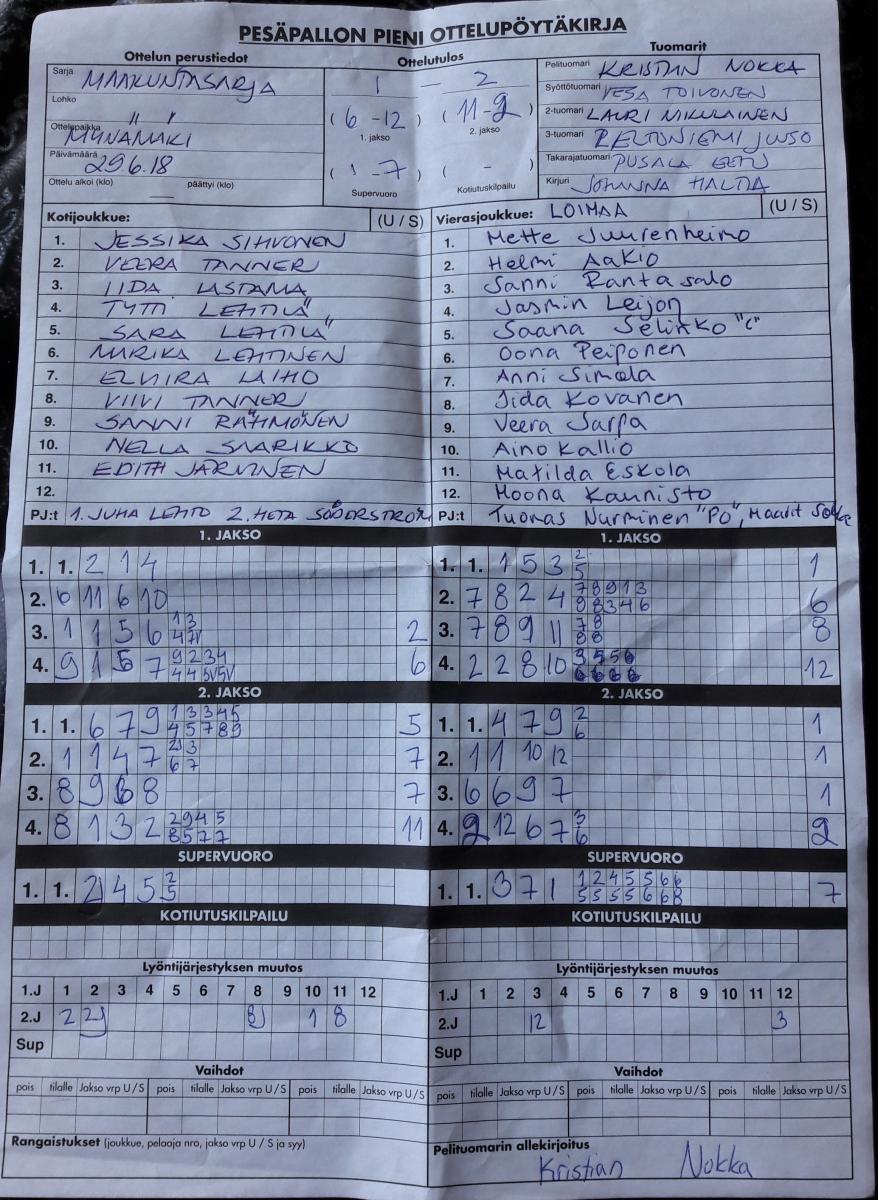 PESÄPALLON PIENI OTTELUPÖYTÄKIRJA
Ottelun perustiedot
Sarja MAAKUNTASARJA
Lohko " "
Ottelupaikka MYNÄMÄKI
Päivämäärä 29.6.18
Ottelu alkoi (klo) päättyi (klo)
Ottelutulos
1 - 2
(6-12) (11-2)
1. jakso 2. jakso
(1-7) ( - )
Supervuoro Kotiutuskilpailu
Tuomarit
Pelituomari KRISTIAN NOKKA
Syöttötuomari VESA TOIVONEN
2-tuomari LAURI MIKULAINEN
3-tuomari PELTONIEMI JUSO
Takarajatuomari PUSALA EETU
Kirjuri JOHANNA HALTIA
Kotijoukkue: (U / S)
1. JESSIKA SIHVONEN
2. VEERA TANNER
3. IIDA USTAMA
4. TYTTI LEHTILÄ
5. SARA LEHTILÄ
6. MARIKA LEHTINEN
7. ELVIRA LAIHO
8. VIIVI TANNER
9. SANNI RÄHMÖNEN
10. NELLA SAARIKKO
11. EDITH JÄRVINEN
12.
PJ:t 1. JUHA LEHTO 2. HETA SÖDERSTRÖM
Vierasjoukkue: LOIMAA (U / S)
1. Mette Juurenheimo
2. Helmi Aakio
3. Sanni Rantasalo
4. Jasmin Leijon
5. Saana Selinko "C"
6. Oona Peiponen
7. Anni Simola
8. Iida Kovanen
9. Veera Sarpa
10. Aino Kallio
11. Matilda Eskola
12. Moona Kaunisto
PJ:t Tuomas Nurminen "PO", Maarit
1. JAKSO
1. 1. 2 1 4
2. 6 11 6 10
3. 1 1 5 6 1 3 2
4 7V
4. 9 1 5 7 9 2 3 4 6
4 4 5V 5V
2. JAKSO
1. 1. 6 7 9 1 3 3 4 5 5
4 5 7 8 9
2. 1 1 4 7 2J 3 7
6 7
3. 8 9 6 8 7
4. 8 1 3 2 2 9 4 5 11
8 5 7 7
SUPERVUORO
1. 1. 2J 4 5 2
5
KOTIUTUSKILPAILU
1. JAKSO
1. 1. 1 5 3 2 1
5
2. 7 8 2 4 7 8 9 1 3 6
9 8 3 4 6
3. 7 8 9 11 7 8 8
8 8
4. 2 2 8 10 3 5 5 6 12
6 6 6 6
2. JAKSO
1. 1. 4 7 9 2 1
6
2. 1 1 10 12 1
3. 6 6 9 7 1
4. 2 12 6 7 3 2
6
SUPERVUORO
1. 1. 3 7 1 1 2 4 5 5 6 6 7
5 5 5 5 6 6 8
KOTIUTUSKILPAILU
Lyöntijärjestyksen muutos
1.J 1 2 3 4 5 6 7 8 9 10 11 12
2.J 2 2J 8J 1 8
Sup
Vaihdot
pois tilalle Jakso vrp U / S pois tilalle Jakso vrp U / S pois tilalle Jakso vrp U / S
Rangaistukset (joukkue, pelaaja nro, jakso vrp U / S ja syy)
Lyöntijärjestyksen muutos
1.J 1 2 3 4 5 6 7 8 9 10 11 12
2.J 12 3
Sup
Vaihdot
pois tilalle Jakso vrp U / S pois tilalle Jakso vrp U / S pois tilalle Jakso vrp U / S
Pelituomarin allekirjoitus
Kristian Nokka